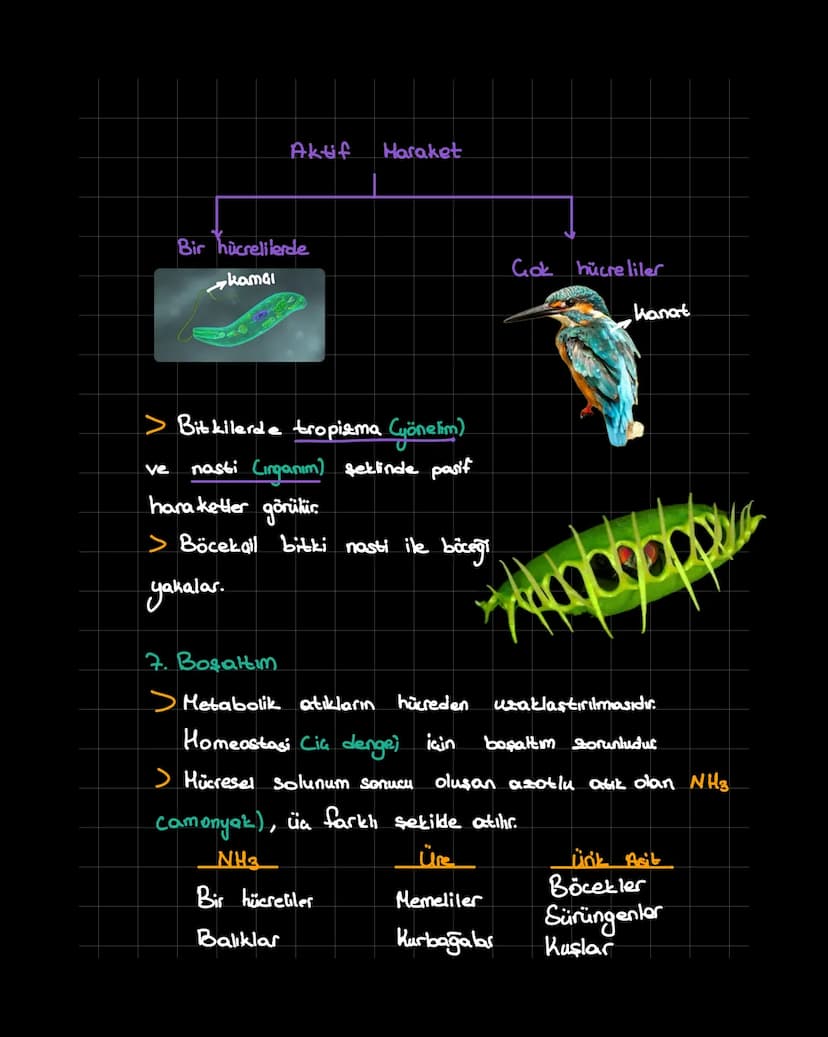 Aktif Haraket
Bir hücrelilerde
Çok hücreliler
kamçı
kanat
> Bitkilerde tropizma (yönelim)
ve nasti (ırganım) şeklinde pasif
haraketler görülür.
> Böcekçil bitki nasti ile böceği
yakalar.
7. Boşaltım
> Metabolik atıkların hücreden uzaklaştırılmasıdır.
Homeostasi (iç denge) için boşaltım zorunludur
> Hücresel solunum sonucu oluşan azotlu atık olan NH3
(amonyak), üç farklı şekilde atılır.
NH3 Üre Ürik Asit
Bir hücreliler Memeliler Böcekler
Balıklar Kurbağalar Sürüngenler
Kuşlar